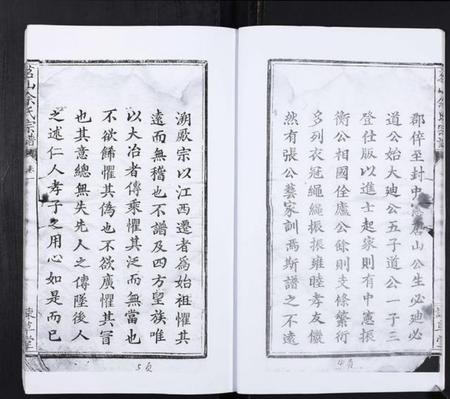 郡倅至封中憲廬山公生必迪必
道公始大迪公五子道公一子三
登仕版以進士起家則有中憲振
衛公相國佺廬公餘則支條繁衍
多列衣冠繩繩振振雍睦孝友儼
然有張公藝家訓焉斯譜之不遠
溯厥宗以江西遷者為始祖懼其
遠而無稽也不譜及四方望族唯
以大冶者傳乘懼其泛而無當也
不欲餙懼其偽也不欲廣懼其冒
也其意總無失先人之傳墜後人
之述仁人孝子之用心如是而已
茗山余氏宗譜
東草堂
5頁
4頁